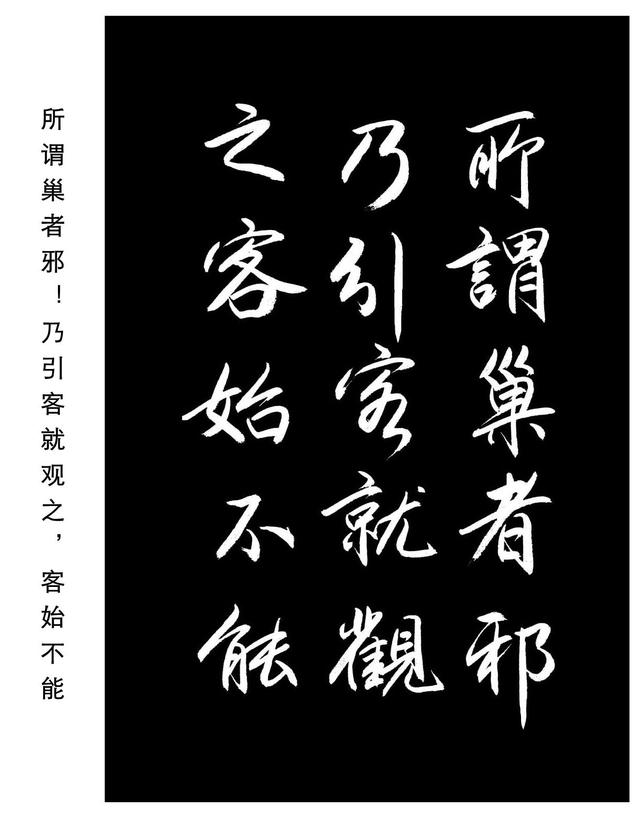 所謂巢者邪
乃引客就觀
之客始不能
所谓巢者邪！乃引客就观之，客始不能